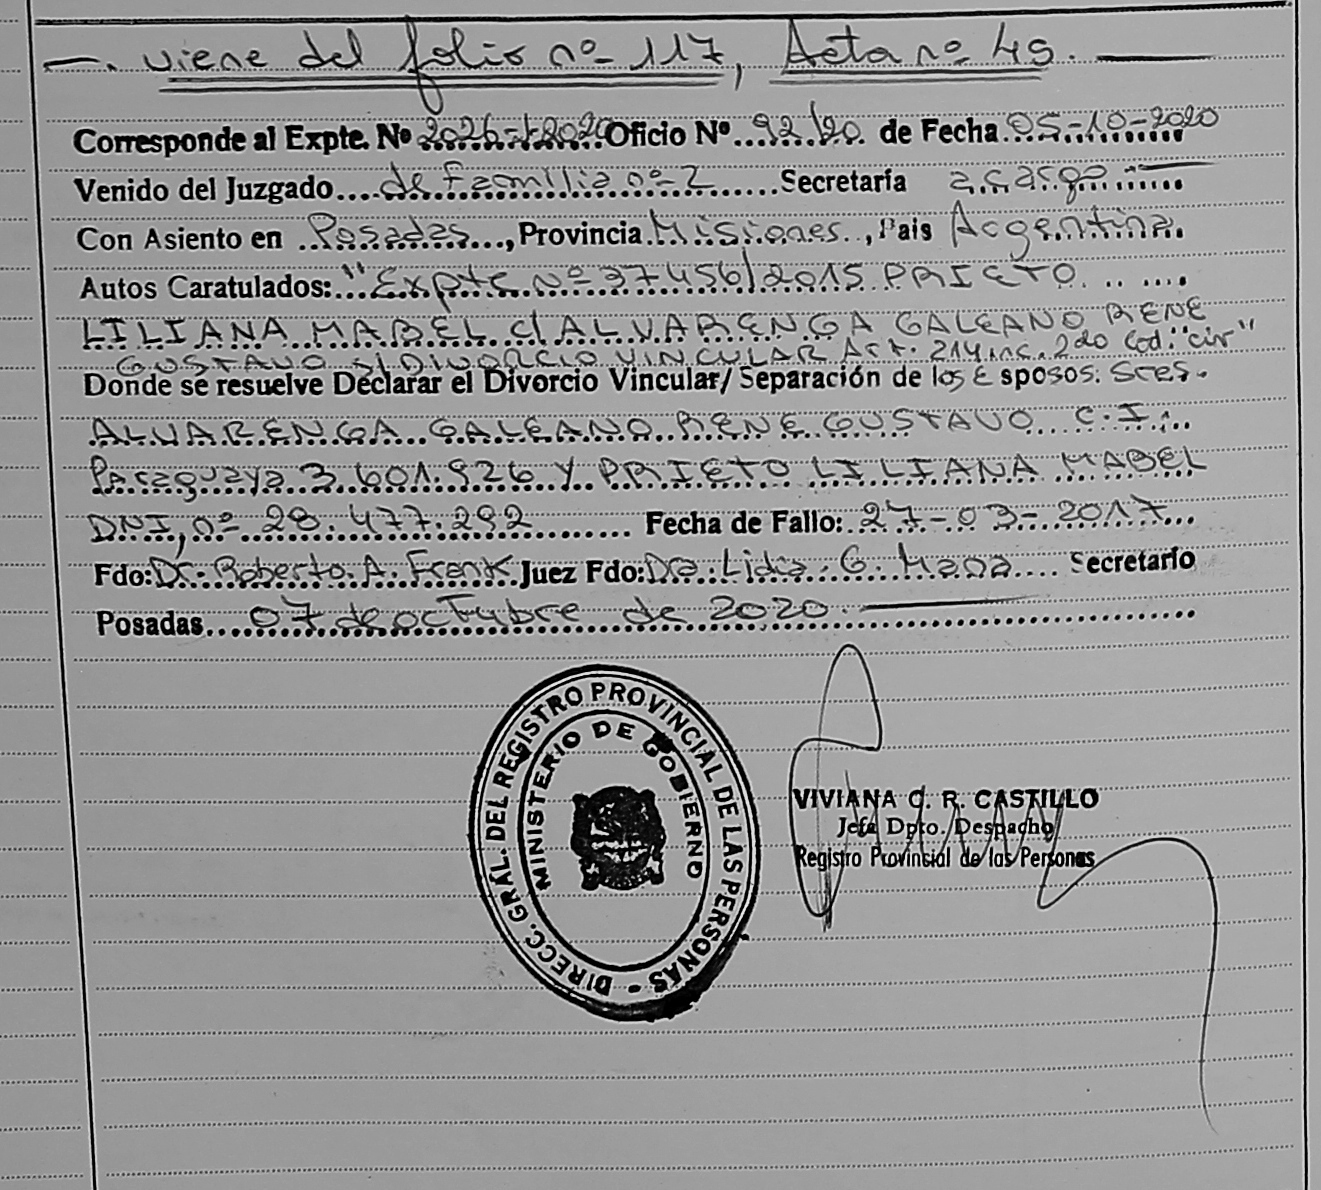 —. viene del folio nº 117, Acta nº 49. —
Corresponde al Expte. Nº 2026-I-2020 Oficio Nº 92/20 de Fecha 05-10-2020
Venido del Juzgado de Familia nº 2 Secretaría a cargo —
Con Asiento en Posadas, Provincia Misiones, Pais Argentina
Autos Caratulados: "Expte Nº 37456/2015 PRIETO
LILIANA MABEL c/ ALVARENGA GALEANO RENE
GUSTAVO s/ DIVORCIO VINCULAR Art. 214 inc. 2do Cod. Civ"
Donde se resuelve Declarar el Divorcio Vincular/ Separación de los Esposos: Sres.
ALVARENGA GALEANO RENE GUSTAVO C.I.
Paraguaya 3.601.926 Y PRIETO LILIANA MABEL
DNI, nº 28.477.292 Fecha de Fallo: 27-03-2017
Fdo: Dr. Roberto A. Frenk Juez Fdo: Dra. Lidia G. Secretario
Posadas 07 de octubre de 2020 —
DIRECC. GRAL. DEL REGISTRO PROVINCIAL DE LAS PERSONAS -
MINISTERIO DE GOBIERNO
VIVIANA C. R. CASTILLO
Jefa Dpto. Despacho
Registro Provincial de las Personas